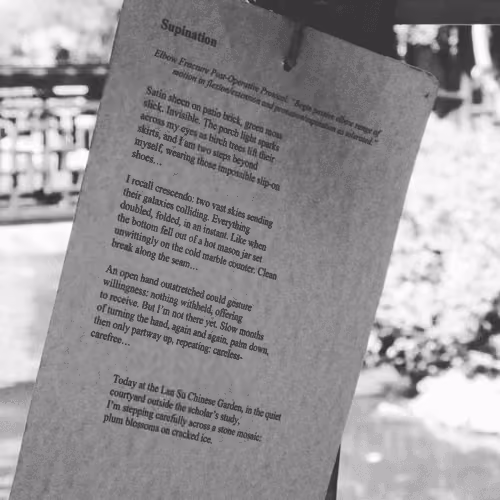 Supination
Elbow Fracture Post-Operative Protocol: "Begin passive elbow range of
motion in flexion/extension and pronation/supination as tolerated."
Satin sheen on patio brick, green moss
slick. Invisible. The porch light sparks
across my eyes as birch trees lift their
skirts, and I am two steps beyond
myself, wearing those impossible slip-on
shoes…
I recall crescendo: two vast skies sending
their galaxies colliding. Everything
doubled, folded, in an instant. Like when
the bottom fell out of a hot mason jar set
unwittingly on the cold marble counter. Clean
break along the seam…
An open hand outstretched could gesture
willingness: nothing withheld, offering
to receive. But I'm not there yet. Slow months
of turning the hand, again and again, palm down,
then only partway up, repeating: careless-
carefree…
Today at the Lan Su Chinese Garden, in the quiet
courtyard outside the scholar's study,
I'm stepping carefully across a stone mosaic:
plum blossoms on cracked ice.